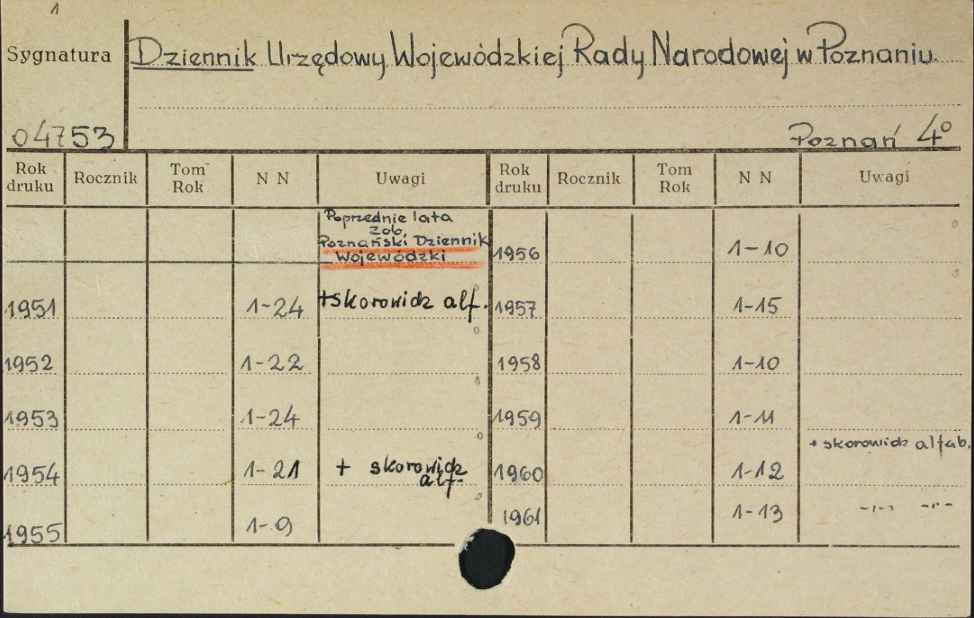 1
Sygnatura
Dziennik Urzędowy Wojewódzkiej Rady Narodowej w Poznaniu.
04753
Poznań 4°
Rok druku Rocznik Tom Rok N N Uwagi Rok druku Rocznik Tom Rok N N Uwagi
Poprzednie lata
zob.
Poznański Dziennik
Wojewódzki
1956 1-10
1951 1-24 +skorowidz alf. 1957 1-15
1952 1-22 1958 1-10
1953 1-24 1959 1-11
1954 1-21 + skorowidz alf. 1960 1-12 + skorowidz alfab.
1955 1-9 1961 1-13 -"- -"-